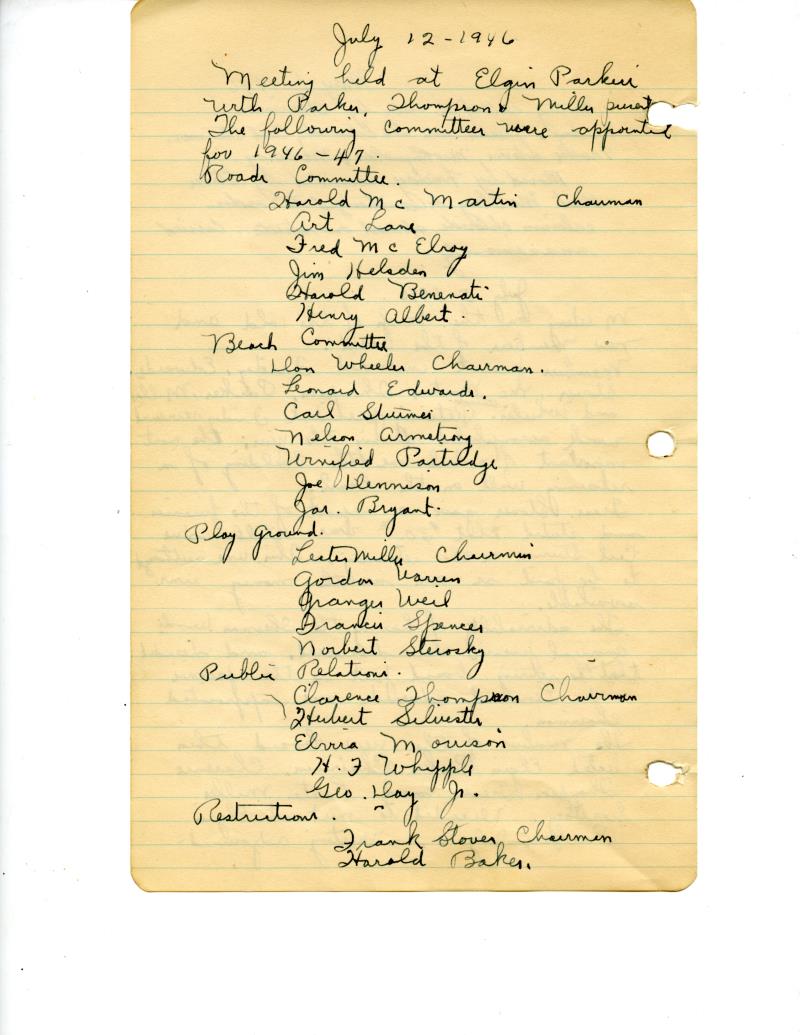 July 12-1946
Meeting held at Elgin Parker
with Parker, Thompson & Miller present
The following committees were appointed
for 1946-47.
Roads Committee.
Harold Mc Martin Chairman
Art Lane
Fred Mc Elroy
Jim Helsden
Harold Benenati
Henry Albert.
Beach Committee
Don Wheeler Chairman.
Leonard Edwards.
Carl
Nelson Armstrong
Winified Partridge
Joe Dennison
Jas. Bryant.
Play Ground.
Lester Miller Chairman
Gordon Warren
Granger Weil
Francis Spencer
Norbert Sterosky
Public Relations.
Clarence Thompson Chairman
Herbert Silvester
Morrison
H. F Whipple
Geo. Day Jr.
Restrictions.
Frank Stover Chairman
Harold Baker.